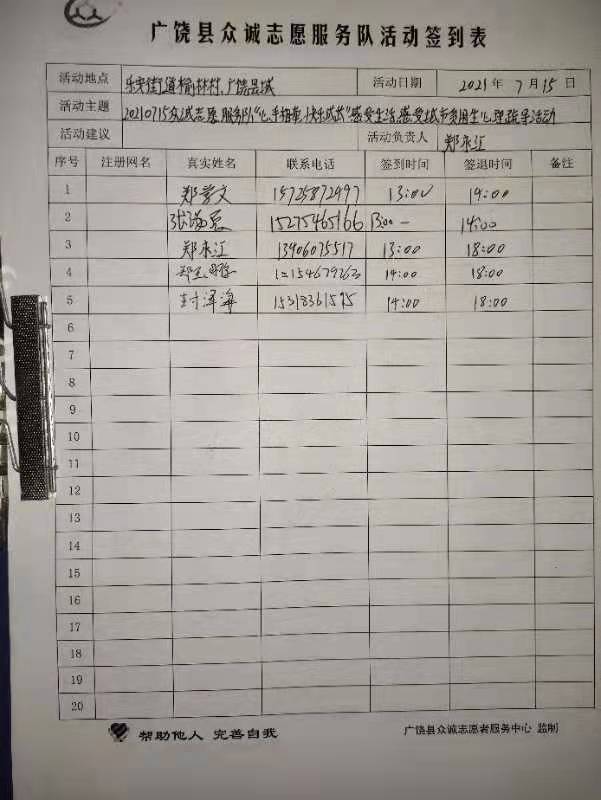 广饶县众诚志愿服务队活动签到表
活动地点 乐安街道榆林村、广饶县城 活动日期 2021年7月15日
活动主题 20210715众诚志愿服务队“心手相牵·快乐成长”感受生活、感受城市贫困生心理疏导活动
活动建议 活动负责人 郑永江
序号 注册网名 真实姓名 联系电话 签到时间 签退时间 备注
1 15725872497 13:00 14:00
2 15275465166 13:00 - 14:00
3 郑永江 13406075517 13:00 18:00
4 14:00 18:00
5 封泽海 15318361595 14:00 18:00
6
7
8
9
10
11
12
13
14
15
16
17
18
19
20
帮助他人 完善自我 广饶县众诚志愿者服务中心 监制